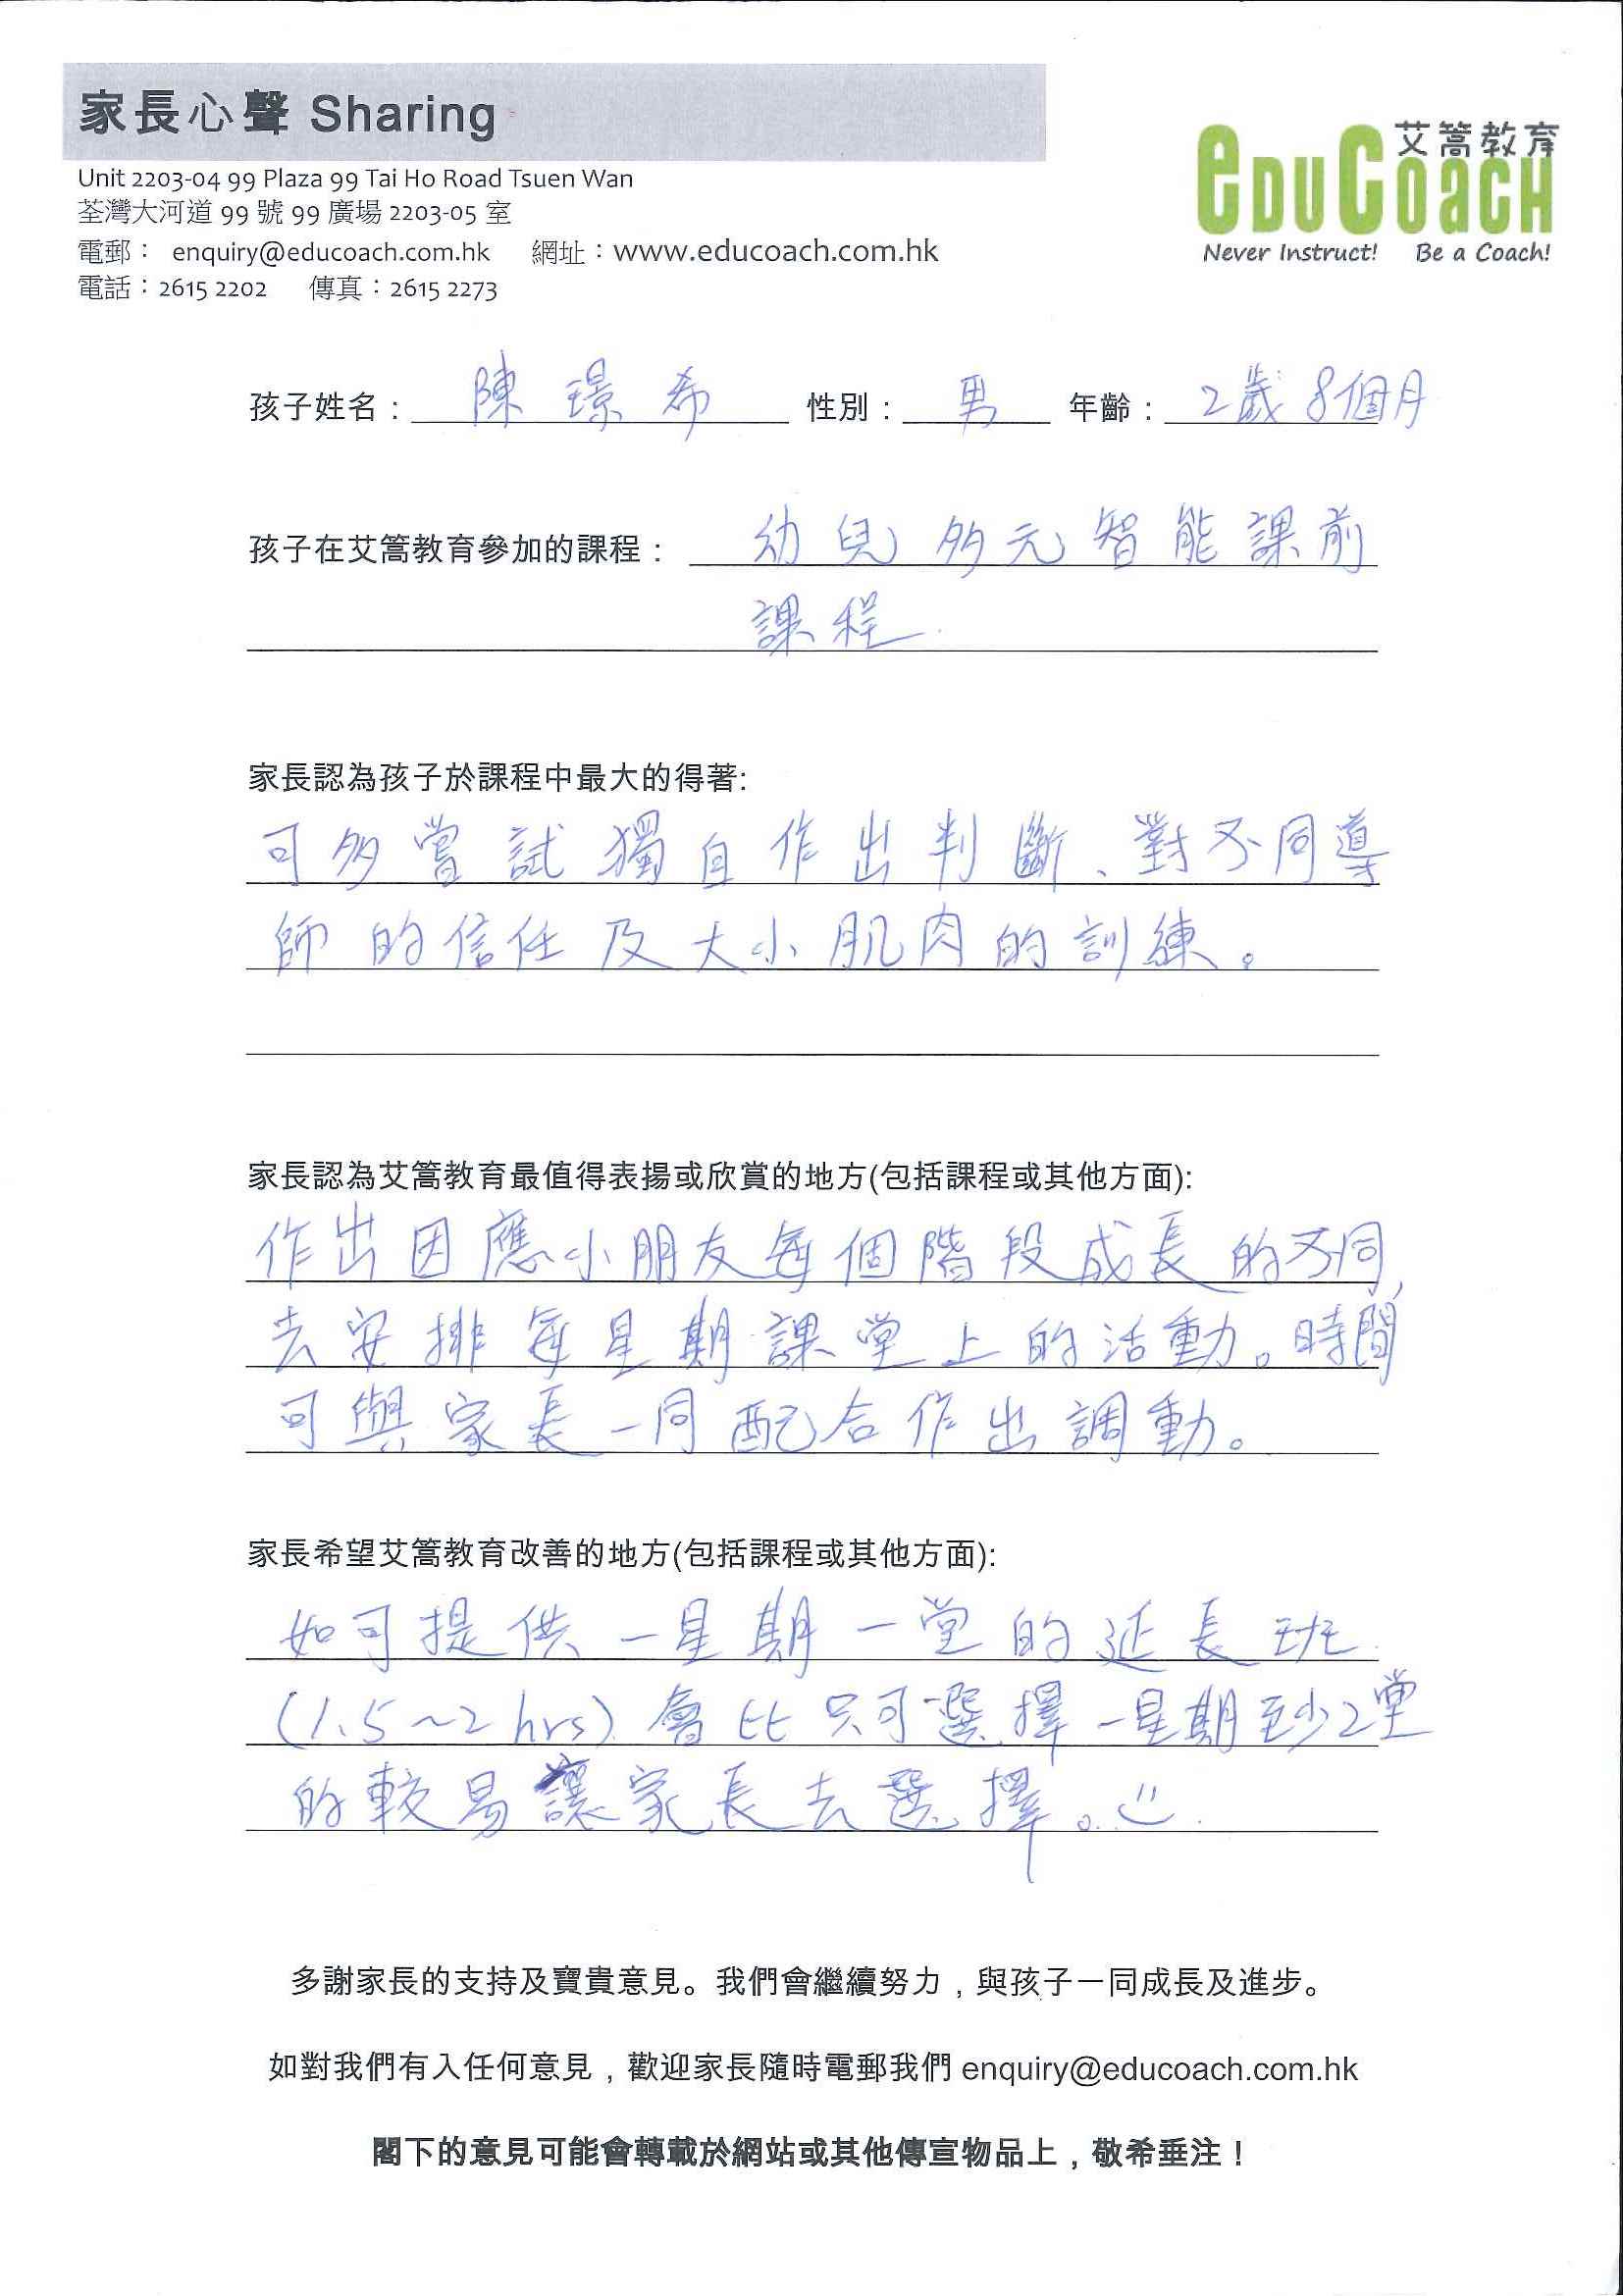 家長心聲 Sharing
艾篙教育
EDUCOACH
Never Instruct! Be a Coach!
Unit 2203-04 99 Plaza 99 Tai Ho Road Tsuen Wan
荃灣大河道 99 號 99 廣場 2203-05 室
電郵： enquiry@educoach.com.hk 網址：www.educoach.com.hk
電話：2615 2202 傳真：2615 2273
孩子姓名： 陳璟希 性別： 男 年齡： 2歲8個月
孩子在艾篙教育參加的課程： 幼兒多元智能課前
課程.
家長認為孩子於課程中最大的得著:
可多嘗試獨自作出判斷、對不同導
師的信任及大小肌肉的訓練。
家長認為艾篙教育最值得表揚或欣賞的地方(包括課程或其他方面):
作出因應小朋友每個階段成長的不同,
去安排每星期課堂上的活動。時間
可與家長一同配合作出調動。
家長希望艾篙教育改善的地方(包括課程或其他方面):
如可提供一星期一堂的延長班
(1.5~2 hrs) 會比只可選擇一星期至少2堂
的較易讓家長去選擇。
多謝家長的支持及寶貴意見。我們會繼續努力，與孩子一同成長及進步。
如對我們有入任何意見，歡迎家長隨時電郵我們 enquiry@educoach.com.hk
閣下的意見可能會轉載於網站或其他傳宣物品上，敬希垂注！